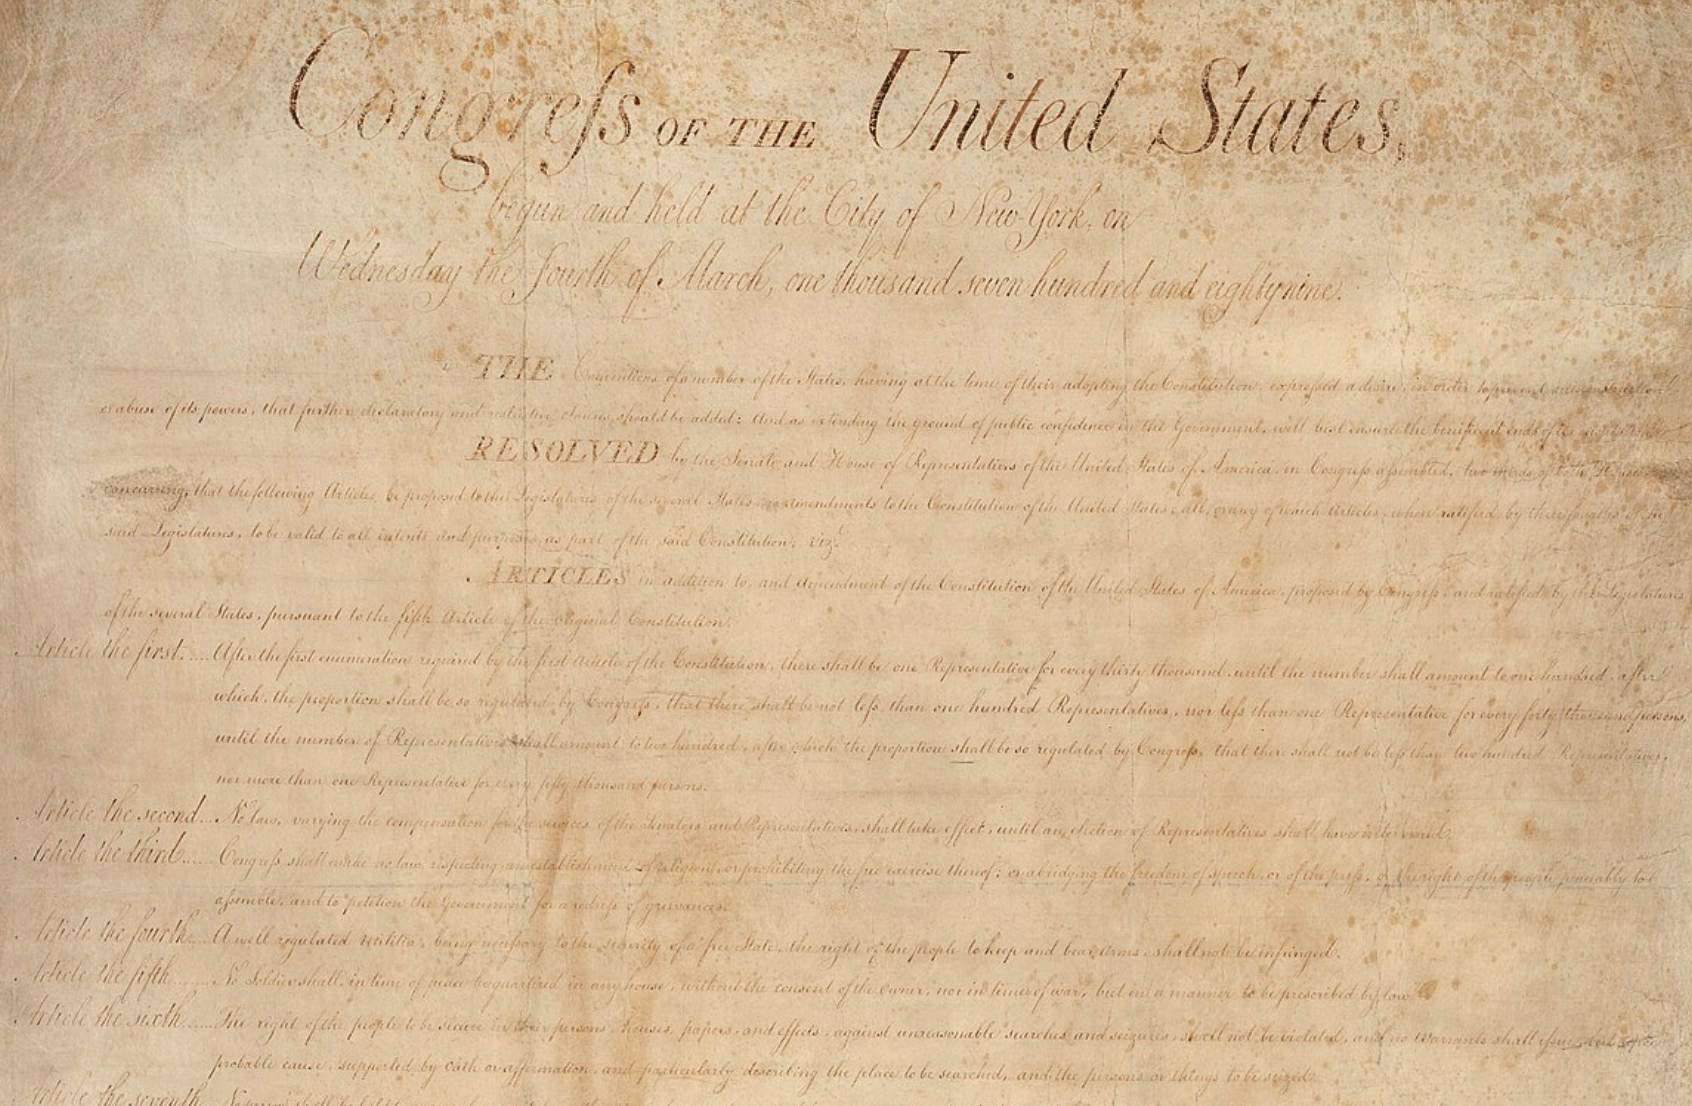 Congreſs OF THE United States,
begun and held at the City of New-York, on
Wednesday the fourth of March, one thousand seven hundred and eighty nine.
THE Conventions of a number of the States, having at the time of their adopting the Constitution, expreſsed a desire, in order to prevent misconstruction
or abuse of its powers, that further declaratory and restrictive clauses should be added: And as extending the ground of public confidence in the Government, will best ensure the beneficent ends of its
RESOLVED by the Senate and House of Representatives of the United States of America, in Congreſs aſsembled, two thirds of both Houses
concurring, that the following Articles be proposed to the Legislatures of the several States, as amendments to the Constitution of the United States, all, or any of which Articles, when ratified by three fourths of the
said Legislatures, to be valid to all intents and purposes, as part of the said Constitution; viz.t
ARTICLES in addition to, and amendment of the Constitution of the United States of America, proposed by Congreſs, and ratified by the Legislatures
of the several States, pursuant to the fifth Article of the original Constitution.
Article the first..... After the first enumeration required by the first Article of the Constitution, there shall be one Representative for every thirty thousand, until the number shall amount to one hundred, after
which, the proportion shall be so regulated by Congreſs, that there shall be not leſs than one hundred Representatives, nor leſs than one Representative for every forty thousand persons,
until the number of Representatives shall amount to two hundred, after which the proportion shall be so regulated by Congreſs, that there shall not be leſs than two hundred Representatives,
nor more than one Representative for every fifty thousand persons.
Article the second... No law, varying the compensation for the services of the Senators and Representatives, shall take effect, until an election of Representatives shall have intervened.
Article the third...... Congreſs shall make no law respecting an establishment of religion, or prohibiting the free exercise thereof; or abridging the freedom of speech, or of the preſs, or the right of the people peaceably to
aſsemble, and to petition the Government for a redreſs of grievances.
Article the fourth.... A well regulated Militia, being neceſsary to the security of a free State, the right of the people to keep and bear Arms, shall not be infringed.
Article the fifth........ No Soldier shall, in time of peace be quartered in any house, without the consent of the Owner, nor in time of war, but in a manner to be prescribed by law.
Article the sixth...... The right of the people to be secure in their persons, houses, papers, and effects, against unreasonable searches and seizures, shall not be violated, and no Warrants shall iſsue, but upon
probable cause, supported by Oath or affirmation, and particularly describing the place to be searched, and the persons or things to be seized.
Article the seventh.. No person shall be held